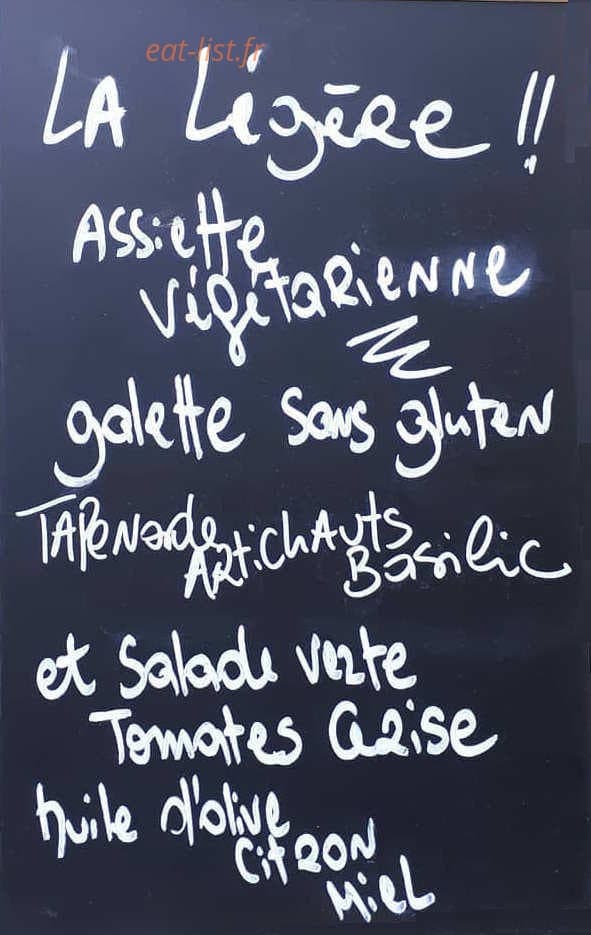 eat-list.fr
LA Légère !!
Assiette
végétarienne
galette sans gluten
Tapenade
Artichauts
Basilic
et Salade verte
Tomates Cerise
huile d'olive
Citron
Miel